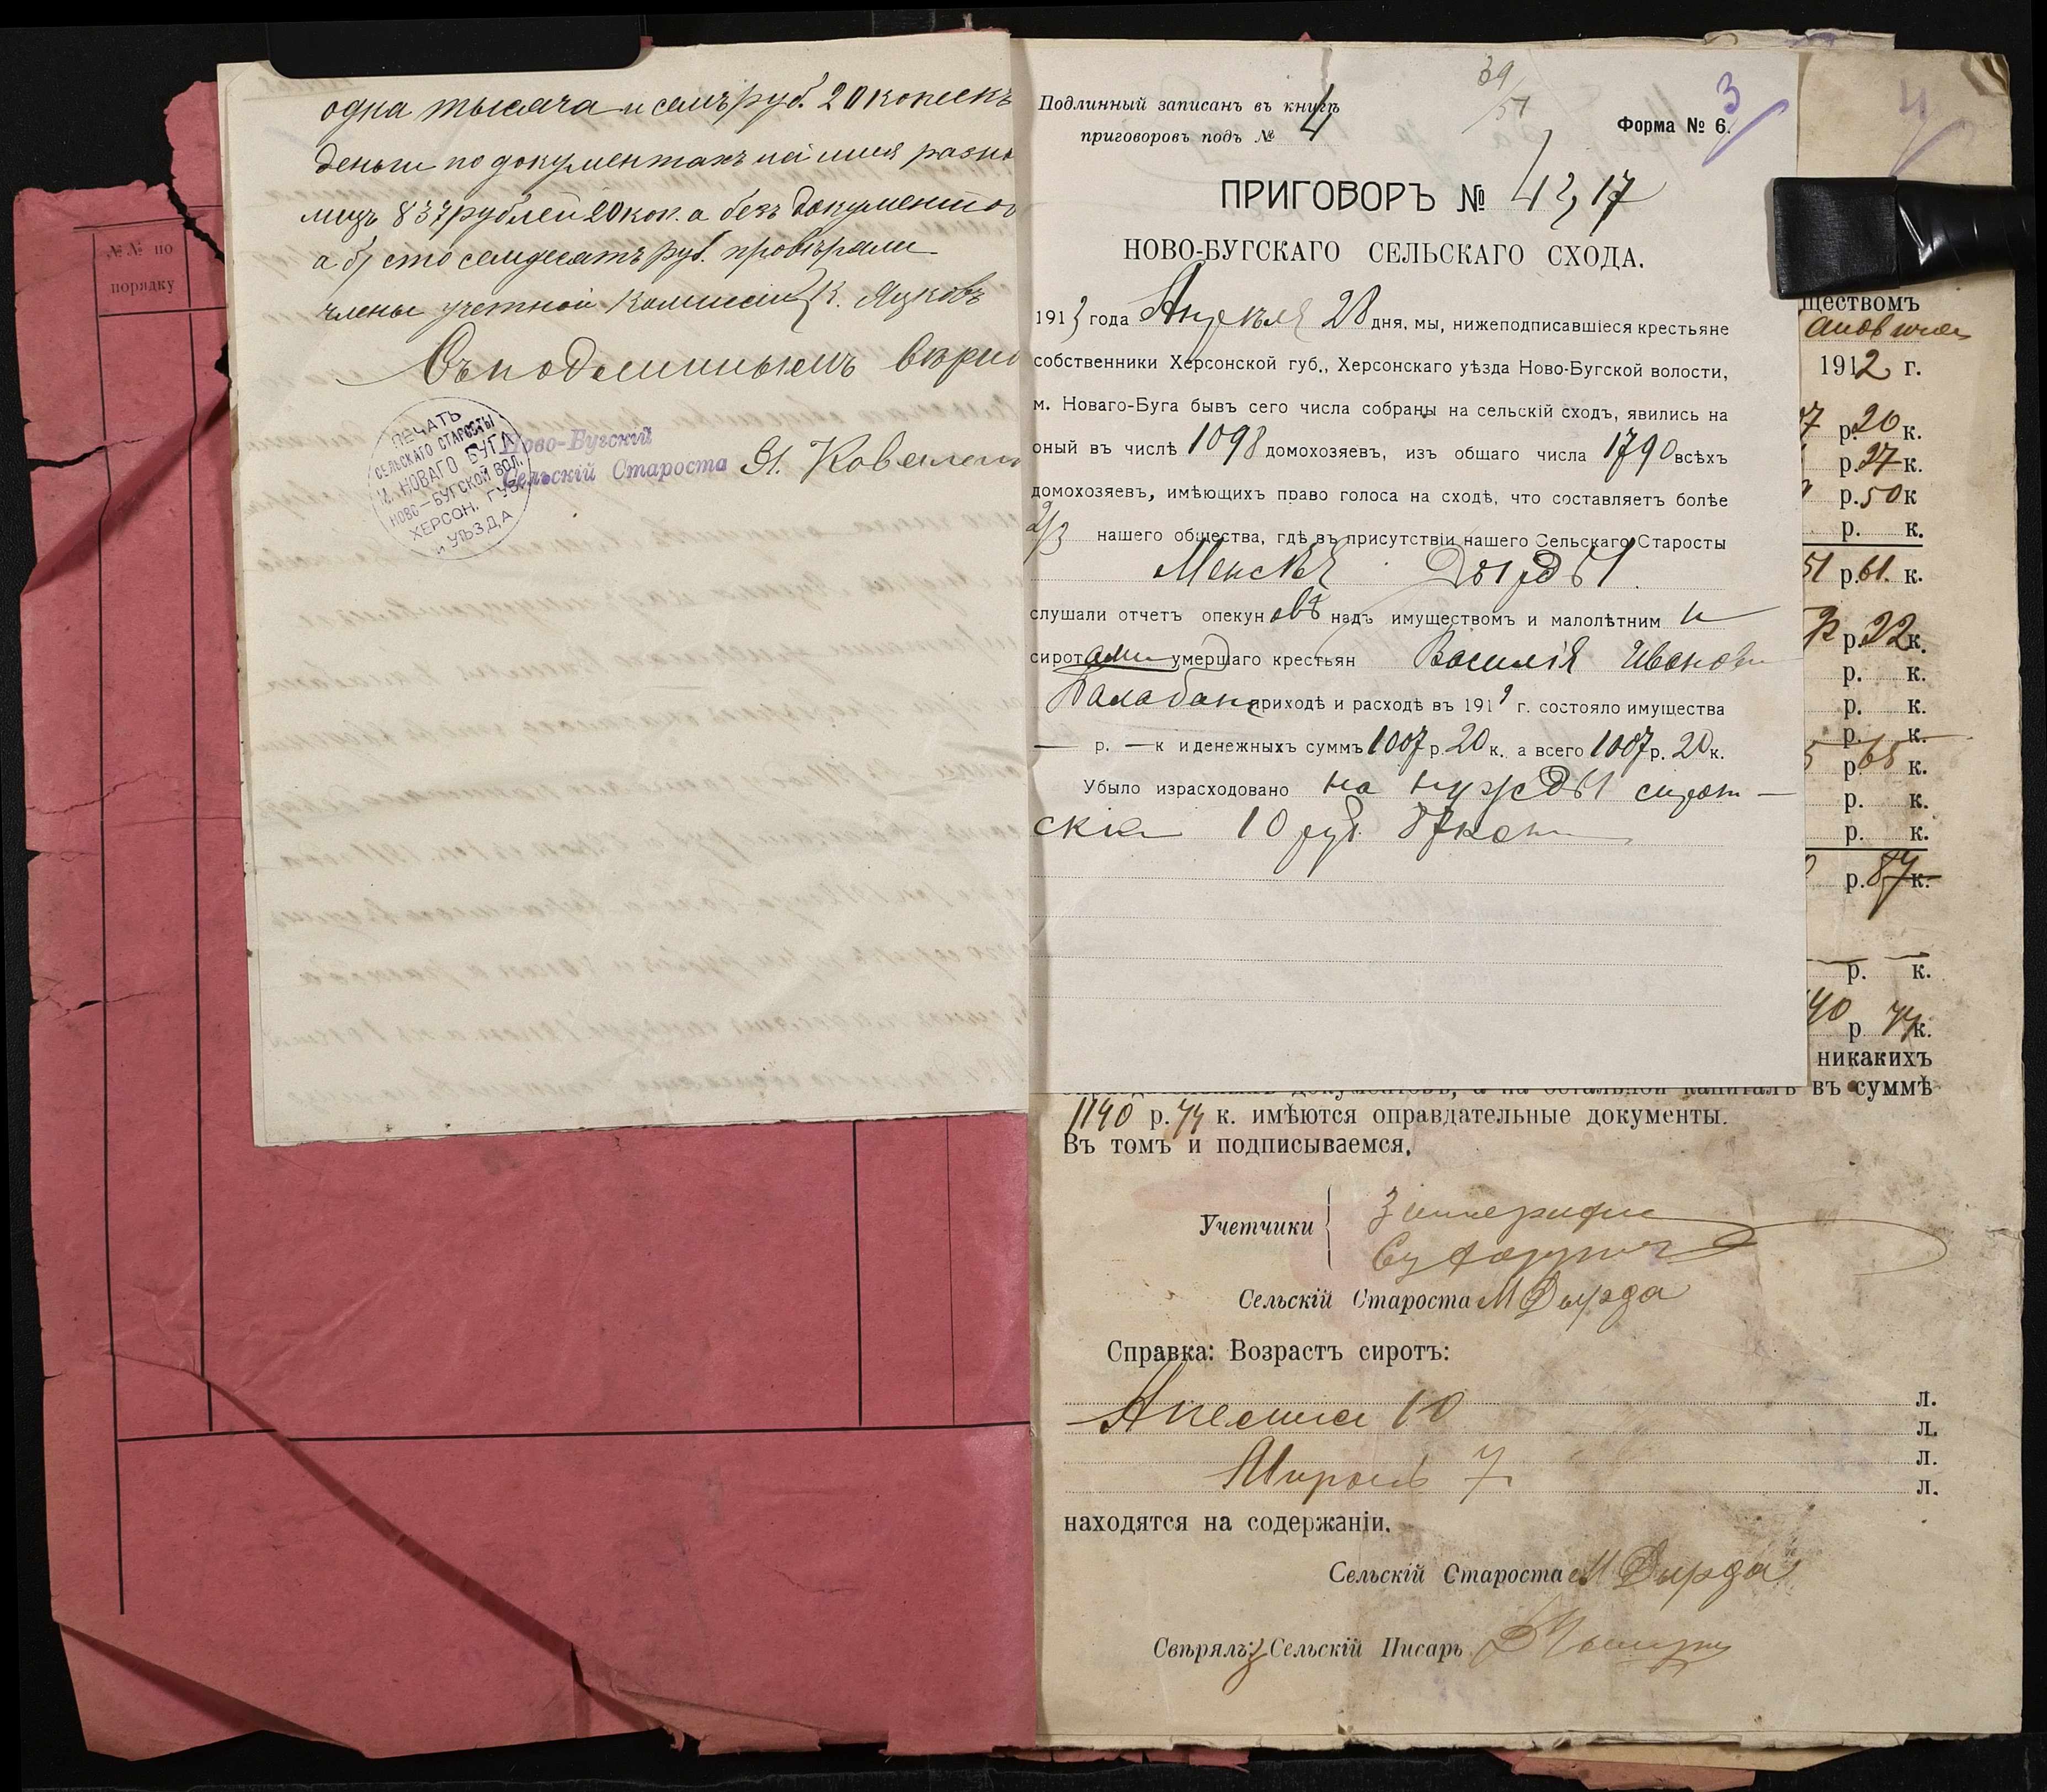 одна тысяча и семь руб. 20 копеекъ
деньги по документахъ на имя разны
лицъ 837 рублей 20 коп. а безъ документов
а б/ сто семдесатъ руб. провѣряли
члены учетной Комиссіи К. Яцковъ
Съ подлиннымъ вѣрно
ПЕЧАТЬ
СЕЛЬСКАГО СТАРОСТЫ
М. НОВАГО БУГА
НОВО-БУГСКОЙ ВОЛ.
ХЕРСОН. ГУБ.
и УѢЗДА
Ново-Бугскій
Сельскій Староста
№ № по
порядку
39
51
3
4
Подлинный записанъ въ книгѣ
приговоровъ подъ № 4
Форма № 6.
ПРИГОВОРЪ № 42,17
НОВО-БУГСКАГО СЕЛЬСКАГО СХОДА.
1913 года Апрѣля 28 дня, мы, нижеподписавшіеся крестьяне
собственники Херсонской губ., Херсонскаго уѣзда Ново-Бугской волости,
м. Новаго-Буга бывъ сего числа собраны на сельскій сходъ, явились на
оный въ числѣ 1098 домохозяевъ, изъ общаго числа 1790 всѣхъ
домохозяевъ, имѣющихъ право голоса на сходѣ, что составляетъ болѣе
2/3 нашего общества, гдѣ въ присутствіи нашего Сельскаго Старосты
Дырды
слушали отчетъ опекуновъ надъ имуществомъ и малолѣтними
сиротами умершаго крестьян Василія Иванова
Балабана приходѣ и расходѣ въ 191 г. состояло имущества
— р. — к и денежныхъ суммъ 1007 р. 20 к. а всего 1007 р. 20 к.
Убыло израсходовано на нужды сирот-
скіе 10 руб. 87 коп
ществомъ
1912 г.
07 р. 20 к.
р. 27 к.
р. 50 к
р. к.
51 р. 61. к.
р. 22 к.
р. к.
р. к.
р. к.
5 р. 65 к.
р. к.
р. к.
р. 87 к.
р. к.
40 р. 74 к.
никакихъ
документовъ, а на остальной капиталъ въ суммѣ
1140 р. 74 к. имѣются оправдательные документы.
Въ томъ и подписываемся.
Учетчики
Сельскій Староста М Дырда
Справка: Возрастъ сиротъ:
л.
Анелина 10 л.
л.
Миронъ 7 л.
находятся на содержаніи.
Сельскій Староста М Дырда
Свѣрялъ: Сельскій Писарь